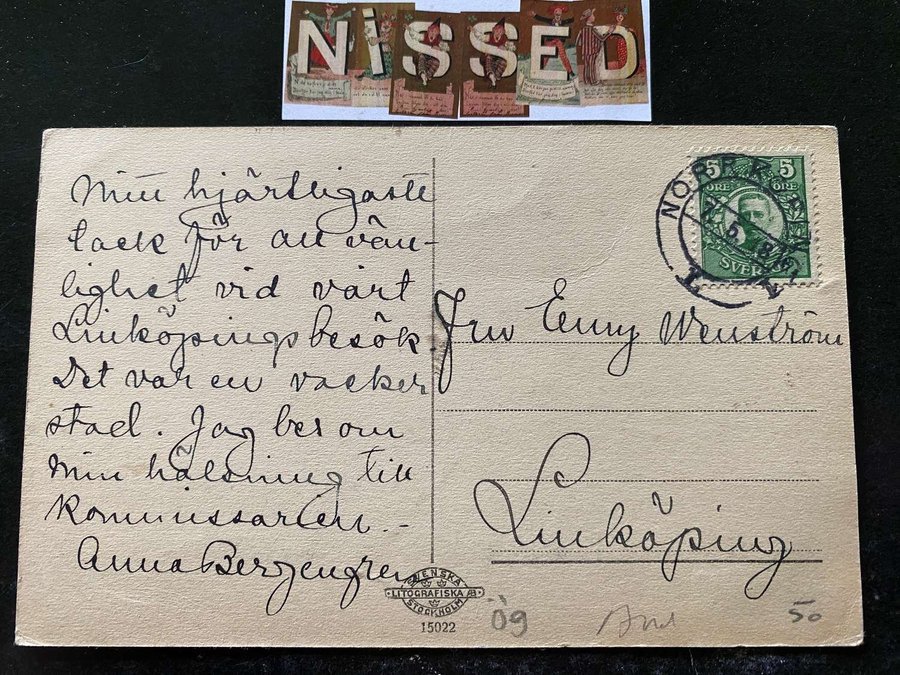 NISSED
Min hjärtligaste
tack för all vän-
lighet vid vårt
Linköpingsbesök.
Det var en vacker
stad. Jag ber om
min hälsning till
Kommissarien. -
Anna Bergengren
5 5
ÖRE ÖRE
SVERIGE
NORRKÖPING
Fru Enny Wenström
Linköping
SVENSKA
LITOGRAFISKA AB
STOCKHOLM
15022
Ög
50